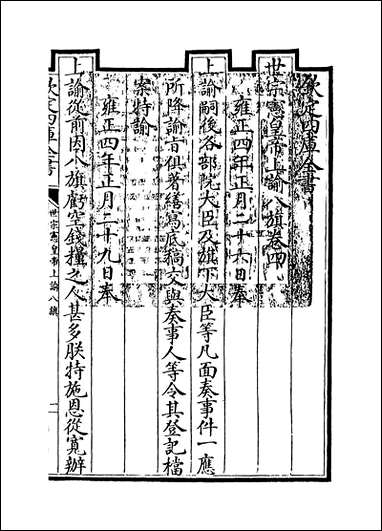 欽定四庫全書
世宗憲皇帝上諭八旗卷四
雍正四年正月二十六日奉
上諭嗣後各部院大臣及旗下大臣等凡面奏事件一應
所降諭旨俱著繕寫底稿交與奏事人等令其登記檔
案特諭
雍正四年正月二十九日奉
上諭從前因八旗虧空錢糧之人甚多朕特施恩從寬辦
欽定四庫全書
世宗憲皇帝上諭八旗